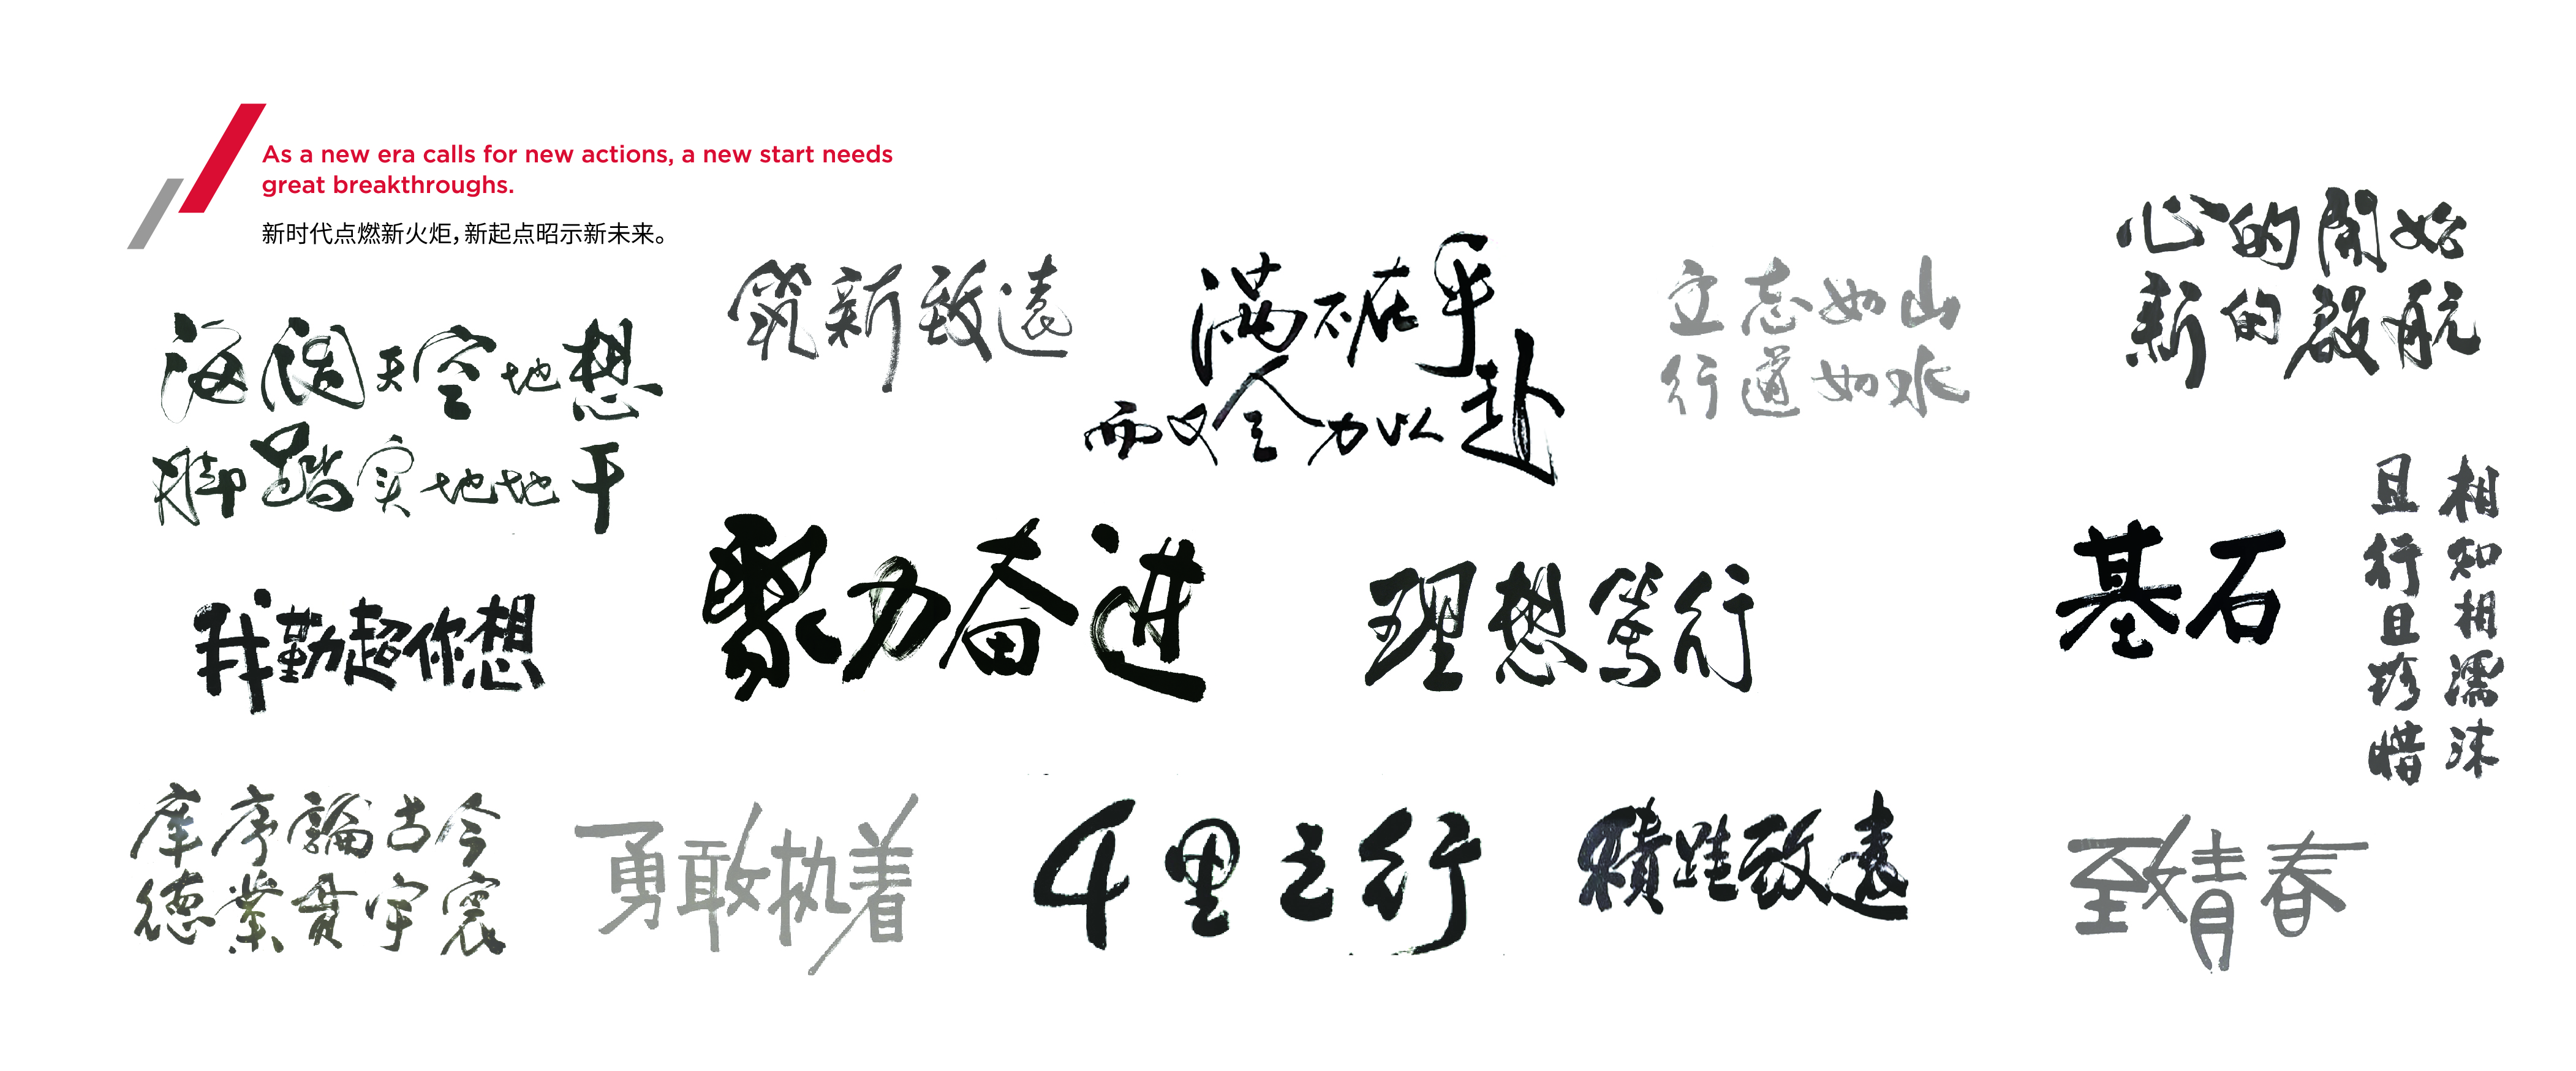 As a new era calls for new actions, a new start needs
great breakthroughs.
新时代点燃新火炬，新起点昭示新未来。
海阔天空地想
脚踏实地地干
筑新致遠
满不在乎
而又全力以赴
立志如山
行道如水
心的開始
新的啟航
我勤超你想
聚力奋进
理想笃行
基石
相知相濡沫
且行且珍惜
庠序論古今
德業貫宇寰
勇敢执着
千里之行
積跬致遠
致青春